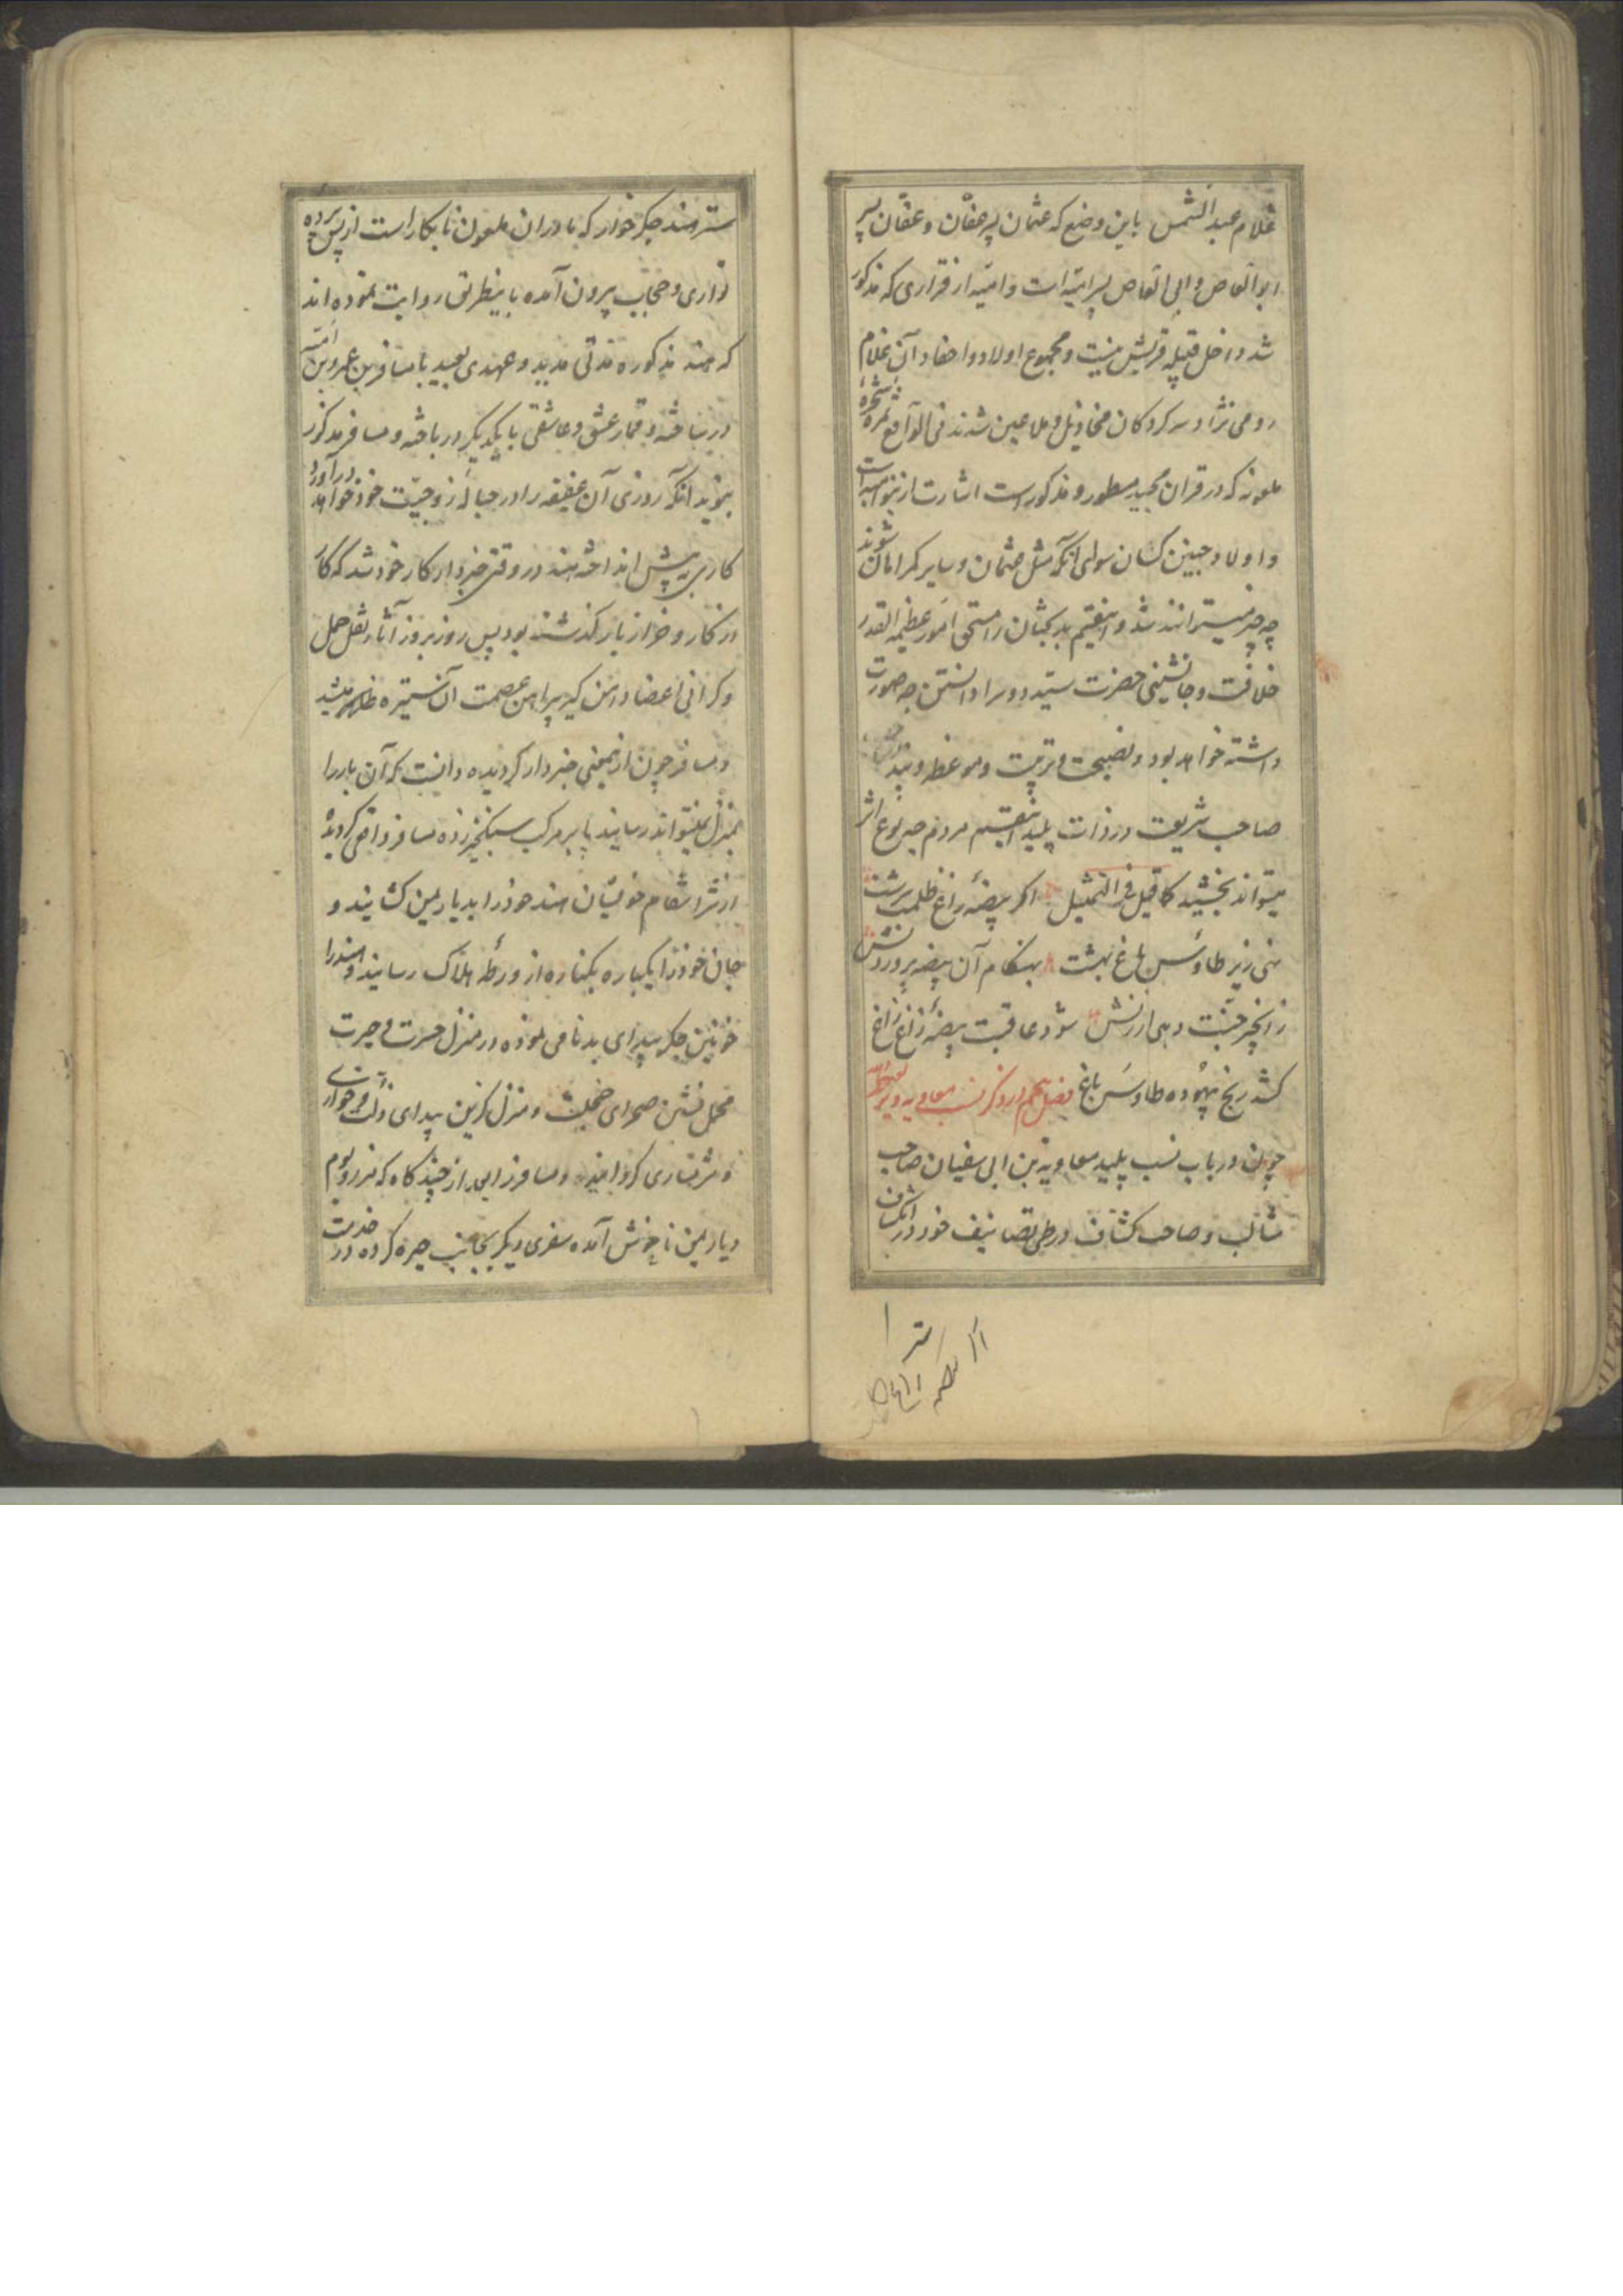 غلام عبد الشمس باین وضع که عثمان پسر عفّان و عفّان پسر
ابو العاص و ابی العاص پسر امیّه است و امیّه از قراری که مذکور
شد داخل قبیله قریش نیست و مجموع اولاد و احفاد آن غلام
رومی نژاد سرکردگان مخاذیل و ملاعین شدند فی الواقع ثمره شجرهٔ
ملعونه که در قران مجید مسطور و مذکور است اشارت از بنو امیه است
و اولاد چنین کسان سوای آنکه مثل عثمان و سایر گمراهان شوند
چه چیز میتوانند شد و اینقسم بدبختان را مستحق امور عظیمه القدر
خلافت و جانشینی حضرت سیّد دوسرا دانستن چه صورت
داشته خواهد بود و نصیحت و تربیت و موعظه و پند
صاحب شریعت در ذات پلید اینقسم مردم چه نوع اثر
میتواند بخشید کما قیل فی التمثیل اگر بیضهٔ زاغ ظلمت سرشت
نهی زیر طاوس باغ بهشت بهنگام آن بیضه پروردنش
ز انجیر جنّت دهی ارزنش شود عاقبت بیضهٔ زاغ زاغ
کشد رنج بیهوده طاوس باغ فصل پنجم در ذکر نسب معاویه و یزید
چون در باب نسب پلید معاویه بن ابی سفیان صاحب
مثالب و صاحب کشّاف در طی تصانیف خود در انکشاف
ستر هند جگر خوار که مادر ان ملعون نابکار است از پس پرده
تواری و حجاب بیرون آمده باینطریق روایت نموده اند
که هند مذکوره مدتی مدید و عهدی بعید با مسافر بن عمرو بن امیّه
در ساخته و قمار عشق و عاشقی با یکدیگر در باخته و مسافر مذکور
بنوید انکه روزی آن عفیفه را در حبالهٔ زوجیّت خود خواهد درآورد
کاری به پیش انداخته هند در وقتی خبردار کار خود شد که کار
از کار و خر از بار گذشته بود پس روز بروز آثار ثقل حمل
و گرانی اعضا دامن گیر پیراهن عصمت آن ستیره ظاهر میشد
و مسافر چون ازینمعنی خبردار گردیده دانست که آن بار را
بمنزل نمیتواند رسانید پا بر مرکب سبکخیز زده مسافر واقعی گردیده
از شر انتقام خویشان هند خود را بدیار یمن کشانید و
جان خود را یکباره بکناره از ورطهٔ هلاک رسانید و هند را
خونین جگر بیدای بدنامی نموده در منزل حسرت و حیرت
محمل نشین صحرای خجلت و منزل گزین بیدای ذلّت و خواری
و شرمساری گردانید و مسافر را بعد از چندگاه که مرز و بوم
دیار یمن ناخوش آمده سفری دیگر بجانب حیره کرده در خدمت